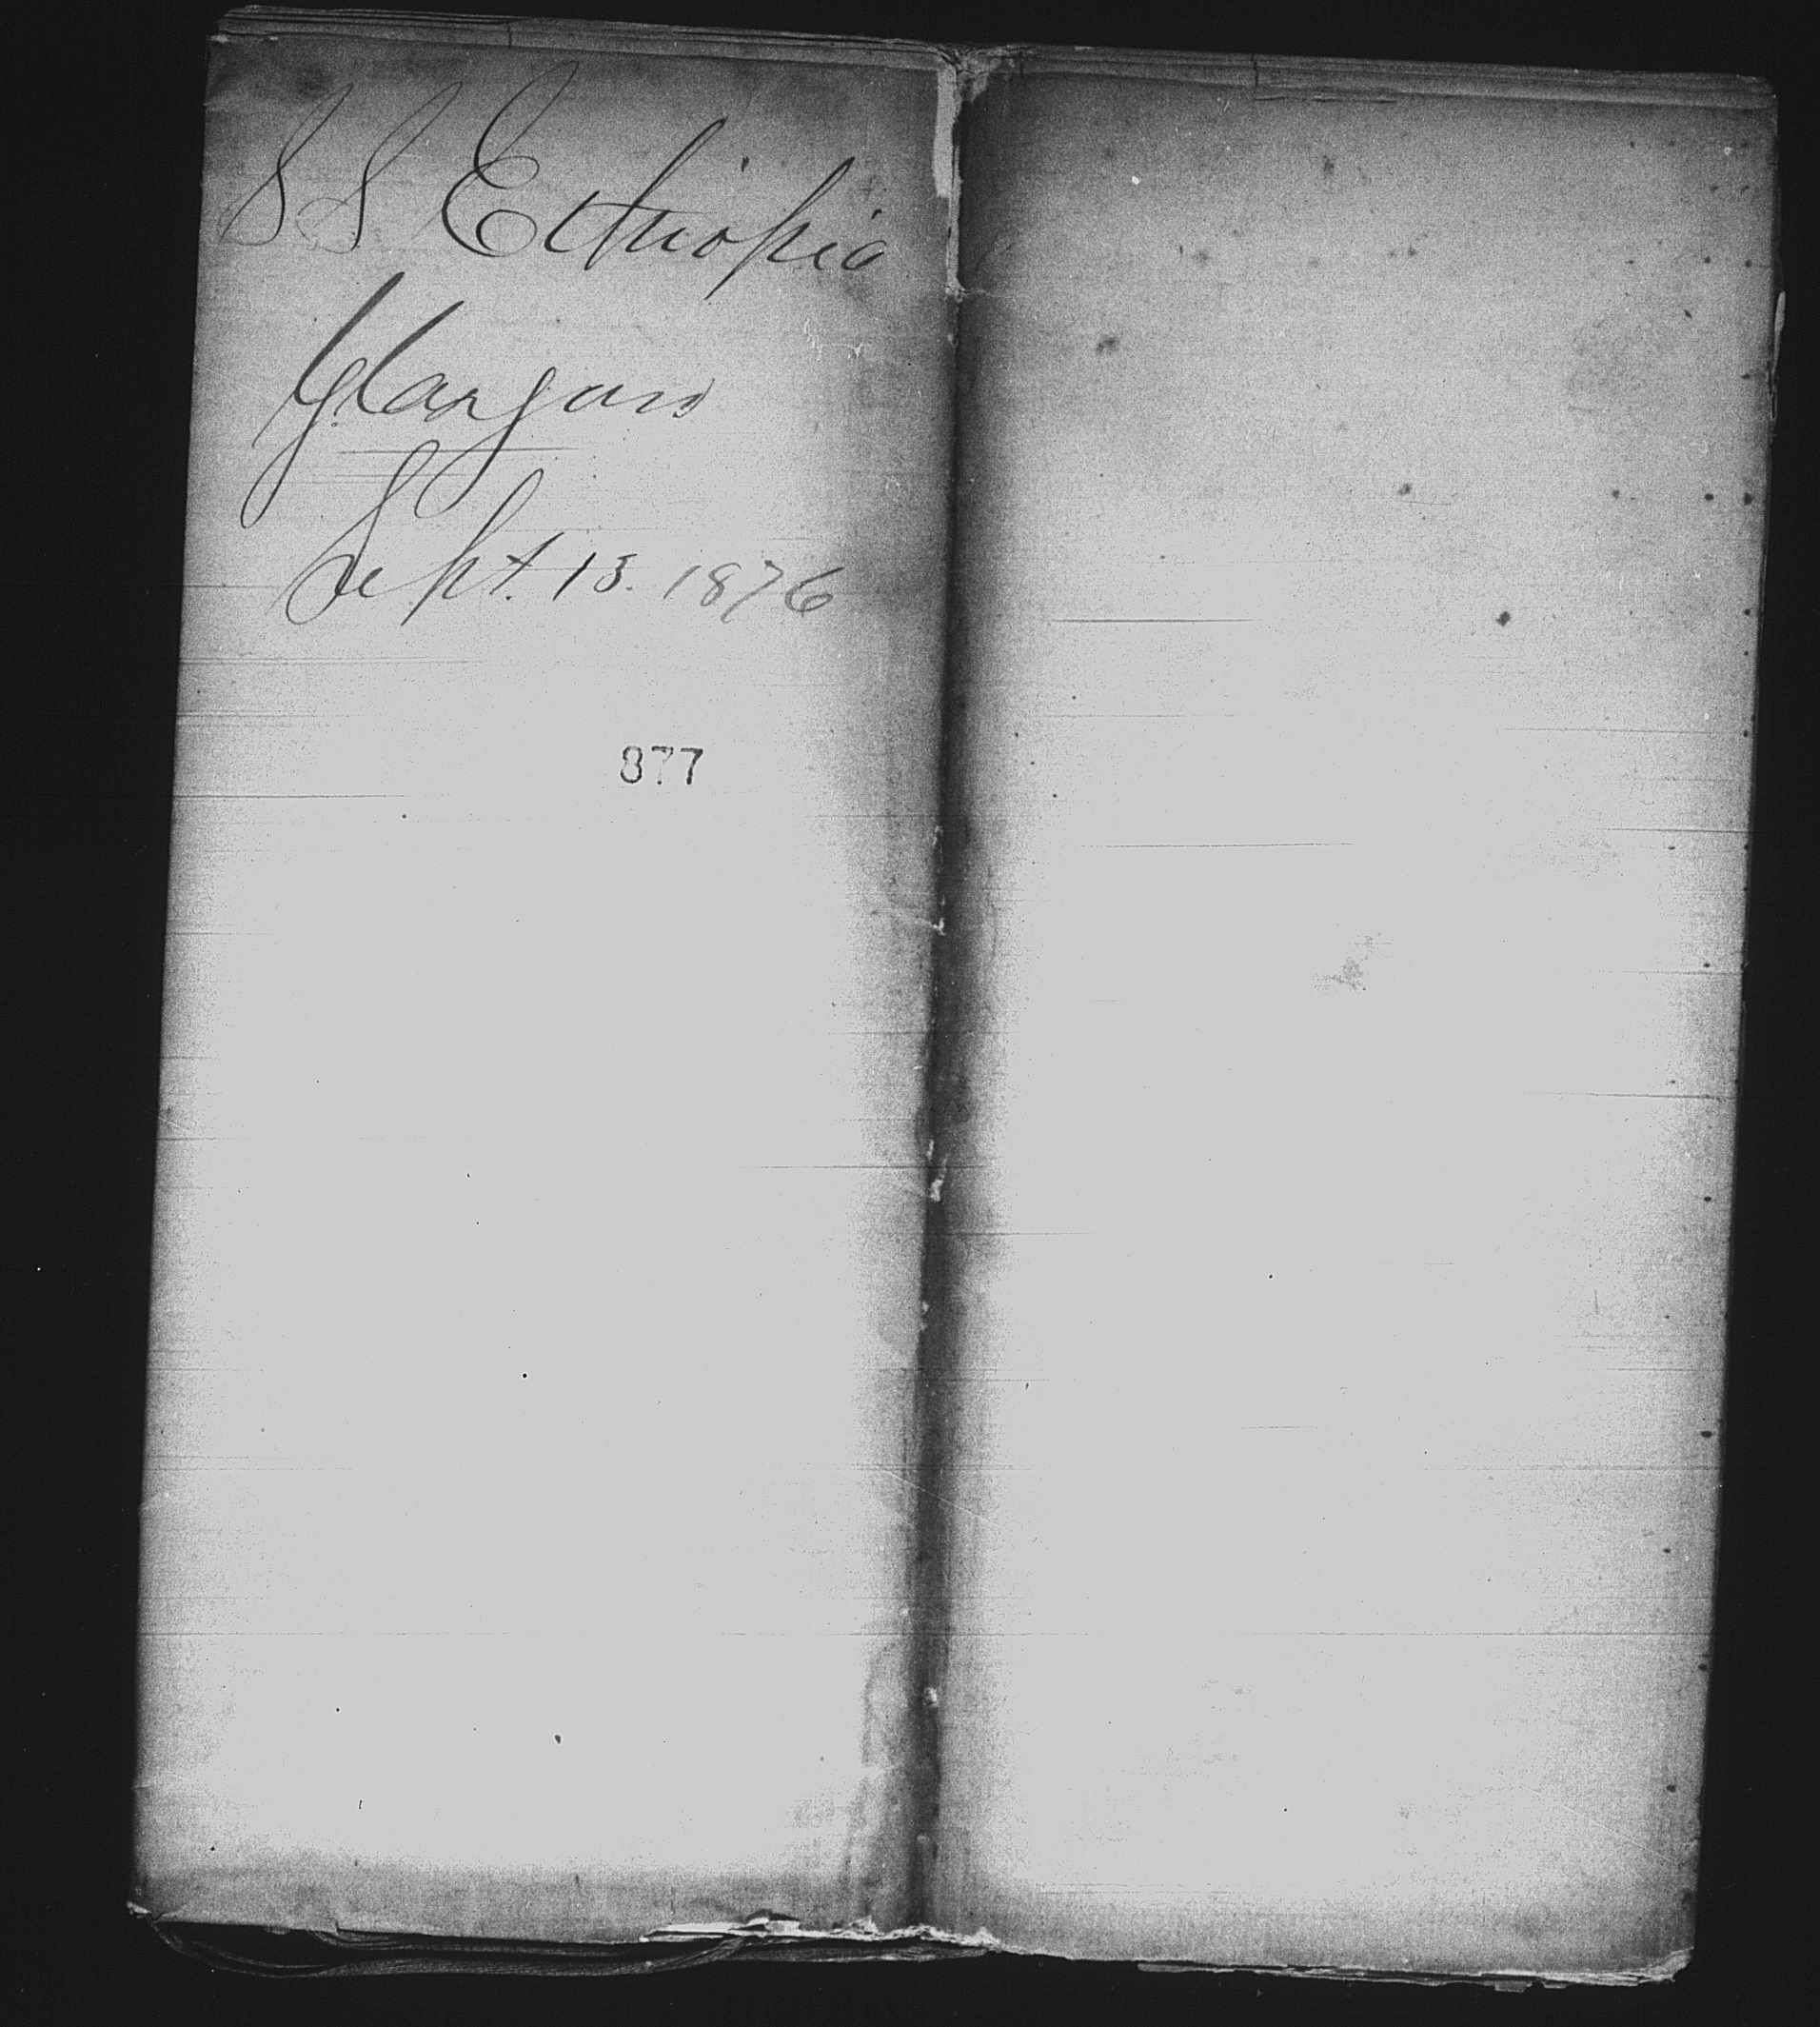 SS Ethiopia
Glasgow
Sept. 13. 1876
877